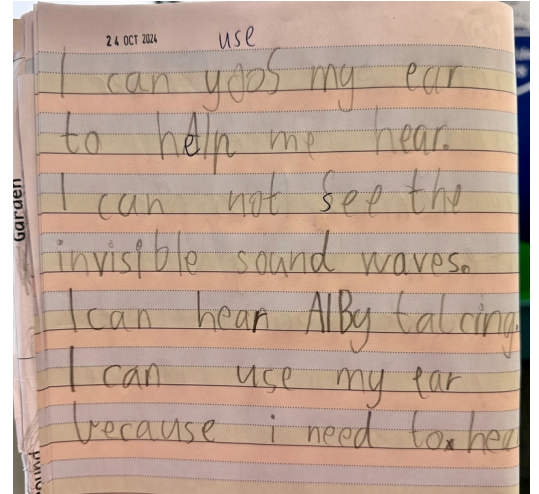 24 OCT 2024 use
I can yoos my ear
to help me hear.
I can not see the
invisible sound waves.
I can hear AlBy talcing.
I can use my ear
because i need to hea
Garden
ound